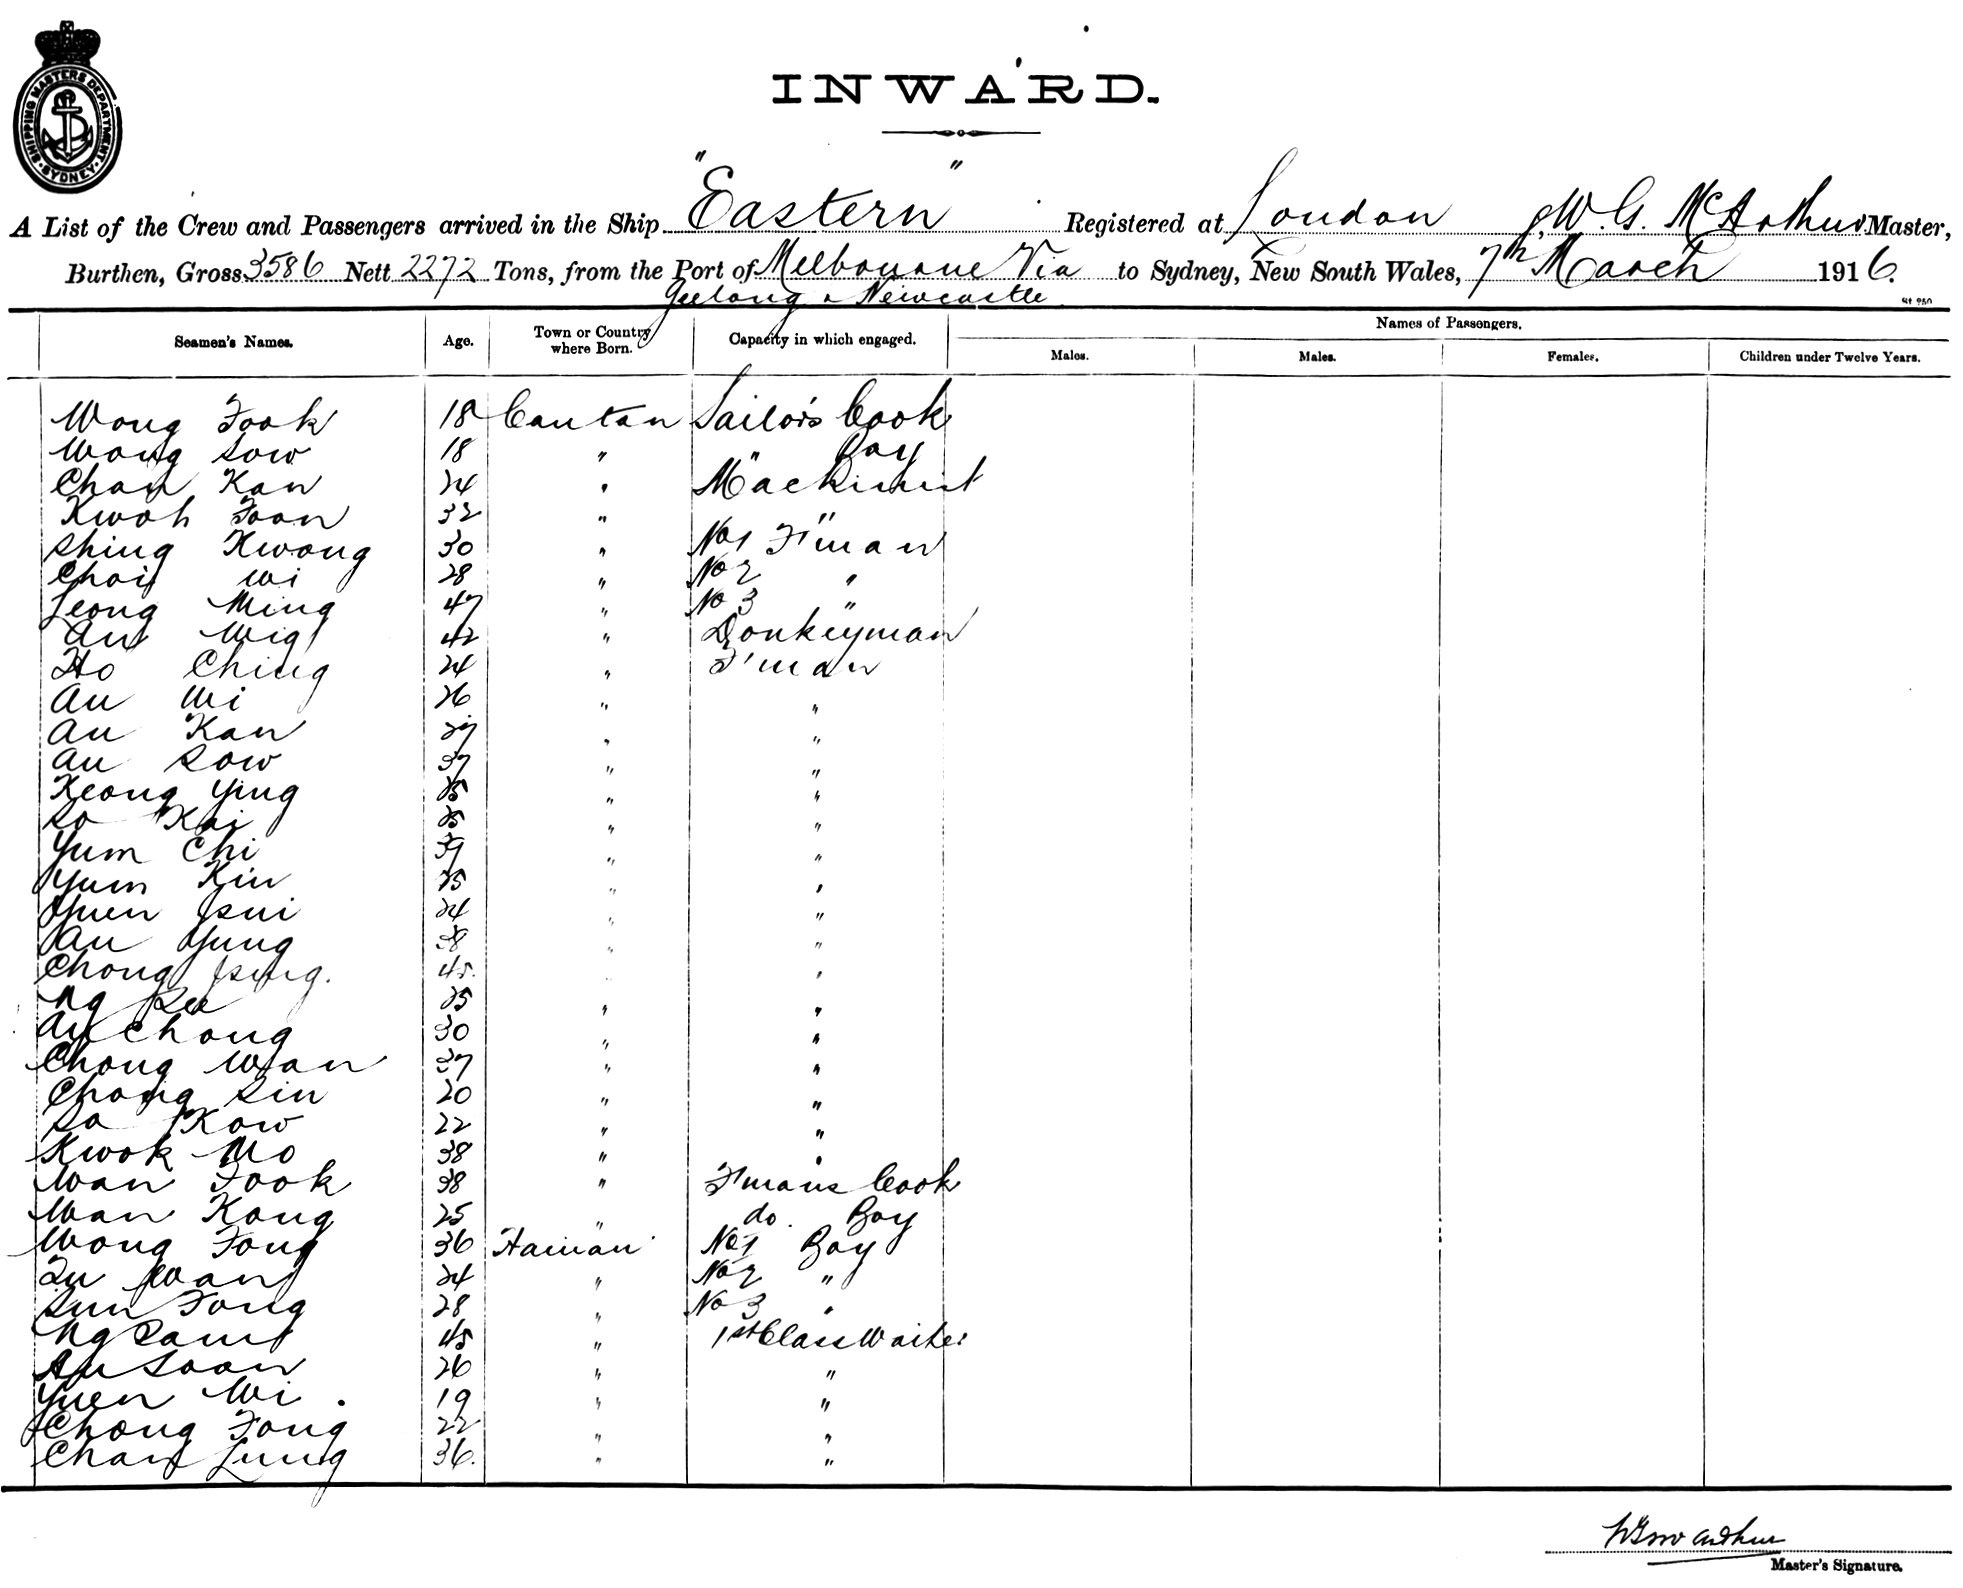 SHIPPING MASTERS DEPARTMENT. SYDNEY.
INWARD.
A List of the Crew and Passengers arrived in the Ship "Eastern" Registered at London, W. G. McArthur Master,
Burthen, Gross 3586 Nett 2272 Tons, from the Port of Melbourne Via to Sydney, New South Wales, 7th March 1916.
Geelong & Newcastle
Seamen's Names. Age. Town or Country where Born. Capacity in which engaged. Names of Passengers.
Males. Males. Females. Children under Twelve Years.
Wong Fook 18 Canton Sailors Cook
Wong Sow 18 " " Boy
Chan Kan 24 " Machinist
Kwoh Foon 32 " "
Shing Kwong 30 " No 1 F'man
Choi Wi 28 " No 2 "
Leong Ming 47 " No 3 "
Au Wig 42 " Donkeyman
Ho Ching 24 " F'man
Au Wi 26 " "
Au Kan 27 " "
Au Sow 37 " "
Keong Ying 25 " "
So Kai 25 " "
Yum Chi 39 " "
Yum Kin 25 " "
Yuen Tsui 24 " "
Au Yung 38 " "
Chong Tsing. 45. " "
Ng 25 " "
Au Chong 30 " "
Chong Wan 37 " "
Chong Sin 20 " "
So Kow 22 " "
Kwok Mo 38 " "
Wan Fook 38 " F'mans Cook
Wan Kong 25 " do. Boy
Wong Fong 36 Hainan No 1 Boy
Wan 24 " No 2 "
Sun Fong 28 " No 3 "
Ng Sam 45 " 1st Class Waiter
Au Soon 26 " "
Yuen Wi. 19 " "
Chong Fong 22 " "
Chan Lung 36. " "
W G McArthur
Master's Signature.